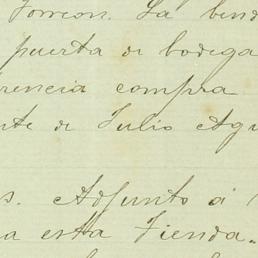 Torreon. La
puerta de bodega
rencia compra
nte de Julio
s. Adjunto á
a esta Tienda.